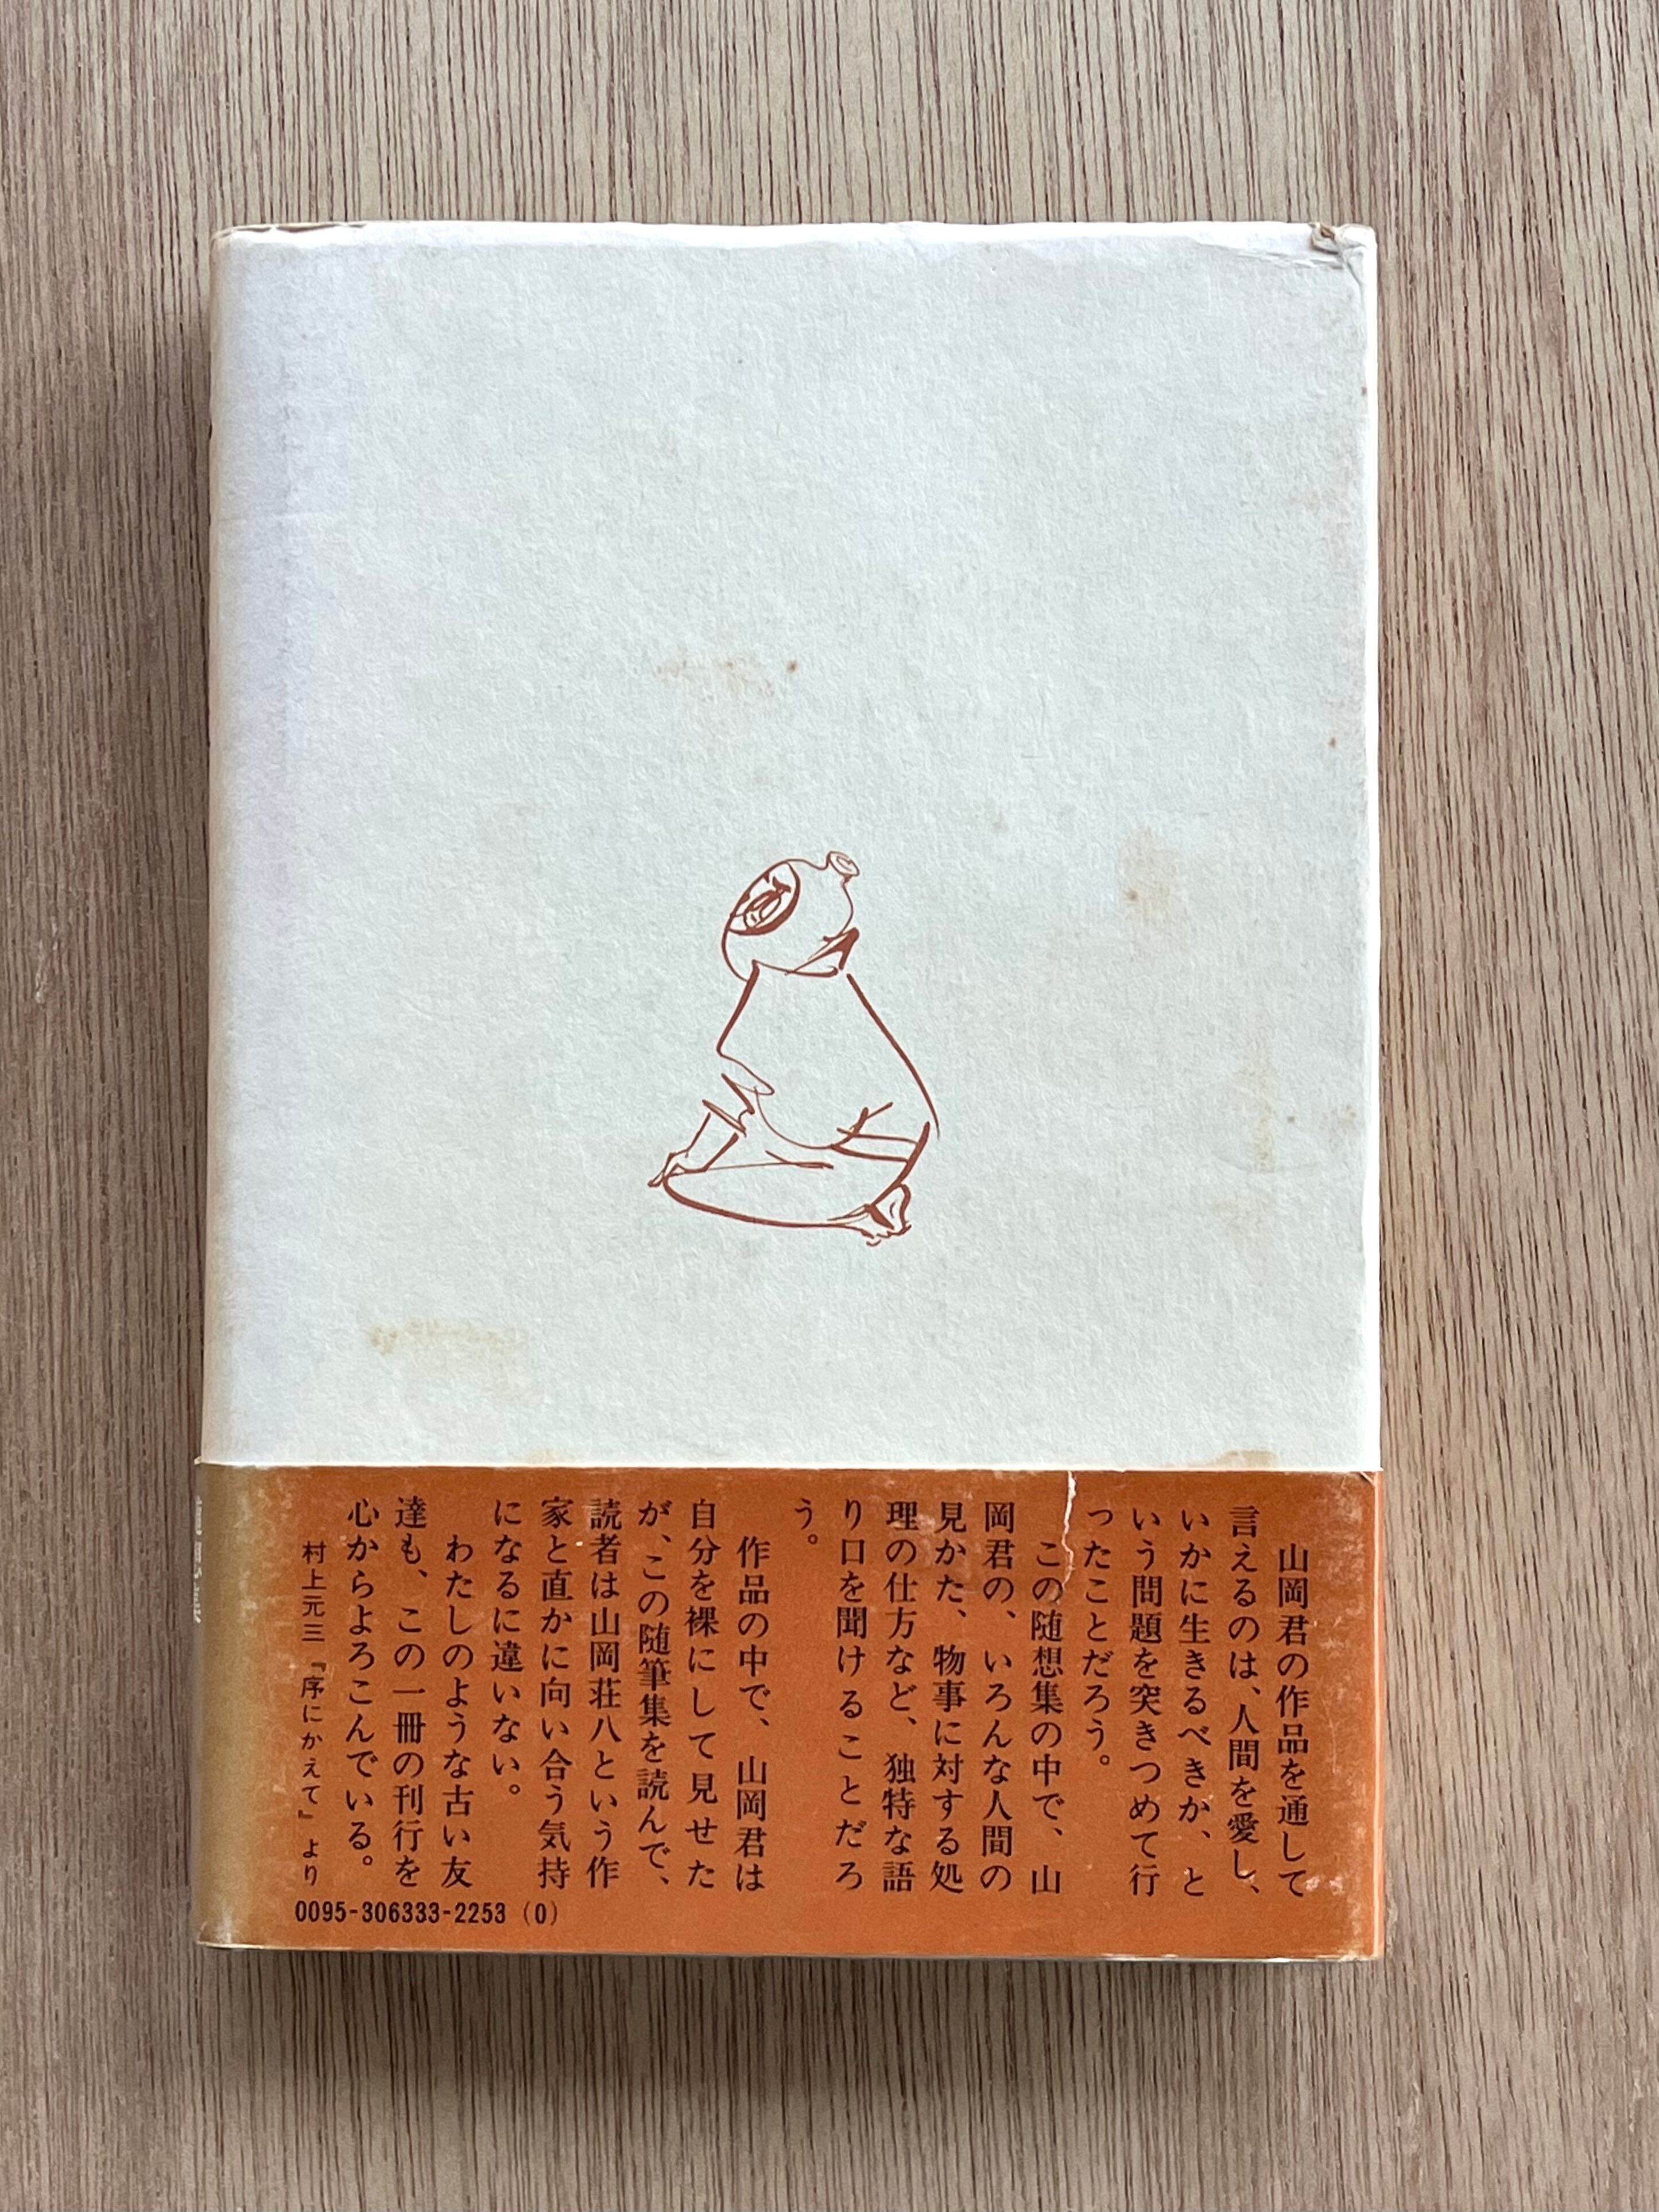 山岡君の作品を通して
言えるのは、人間を愛し、
いかに生きるべきか、と
いう問題を突きつめて行
ったことだろう。
この随想集の中で、山
岡君の、いろんな人間の
見かた、物事に対する処
理の仕方など、独特な語
り口を聞けることだろ
う。
作品の中で、山岡君は
自分を裸にして見せた
が、この随筆集を読んで、
読者は山岡荘八という作
家と直かに向い合う気持
になるに違いない。
わたしのような古い友
達も、この一冊の刊行を
心からよろこんでいる。
村上元三『序にかえて』より
0095-306333-2253 (0)